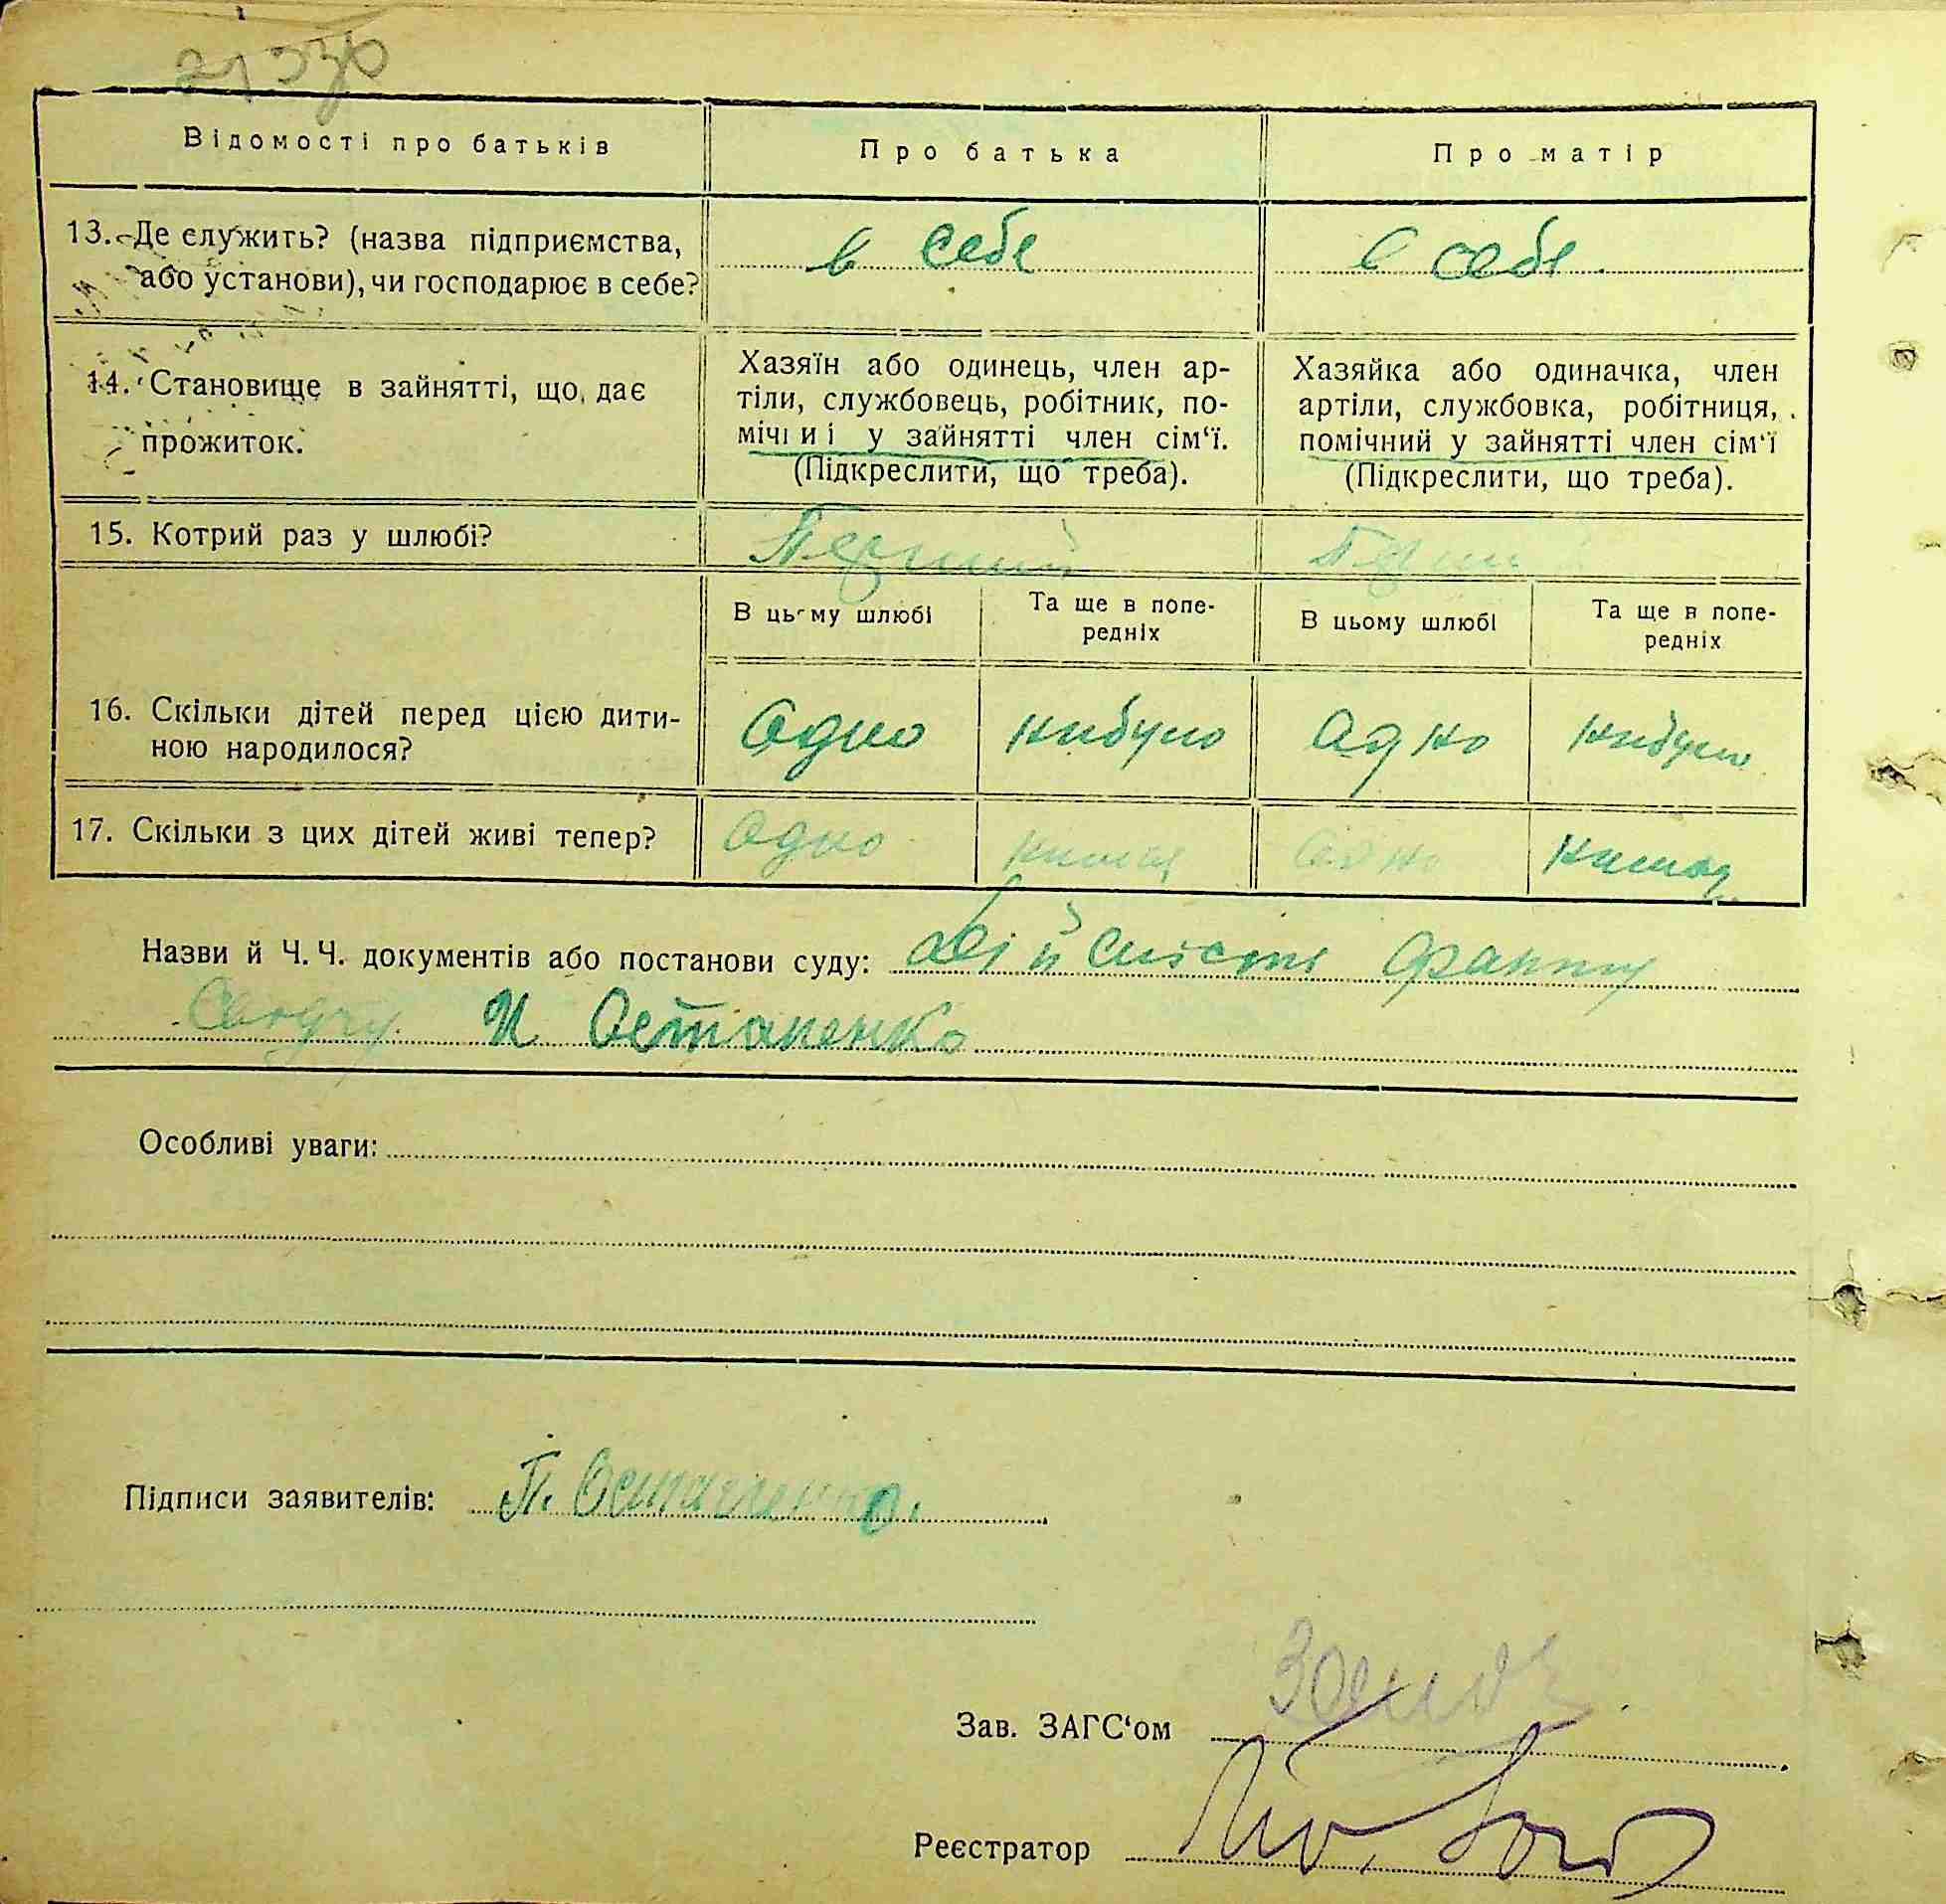 Відомості про батьків
Про батька
Про матір
13. Де служить? (назва підприємства,
або установи), чи господарює в себе?
в себе
в себе
14. Становище в зайнятті, що дає
прожиток.
Хазяїн або одинець, член ар-
тіли, службовець, робітник, по-
мічний у зайнятті член сім‘ї.
(Підкреслити, що треба).
Хазяйка або одиначка, член
артіли, службовка, робітниця,
помічний у зайнятті член сім‘ї
(Підкреслити, що треба).
15. Котрий раз у шлюбі?
Перший
Перший
В цьому шлюбі
Та ще в попе-
редніх
В цьому шлюбі
Та ще в попе-
редніх
16. Скільки дітей перед цією дити-
ною народилося?
Одно
нибуло
Одно
нибуло
17. Скільки з цих дітей живі тепер?
Одно
нимая
Одно
нимая
Назви й Ч. Ч. документів або постанови суду: Дійсність Факту
Свидчу И Остапенко
Особливі уваги:
Підписи заявителів: П. Остапенко.
Зав. ЗАГС‘ом
Реєстратор